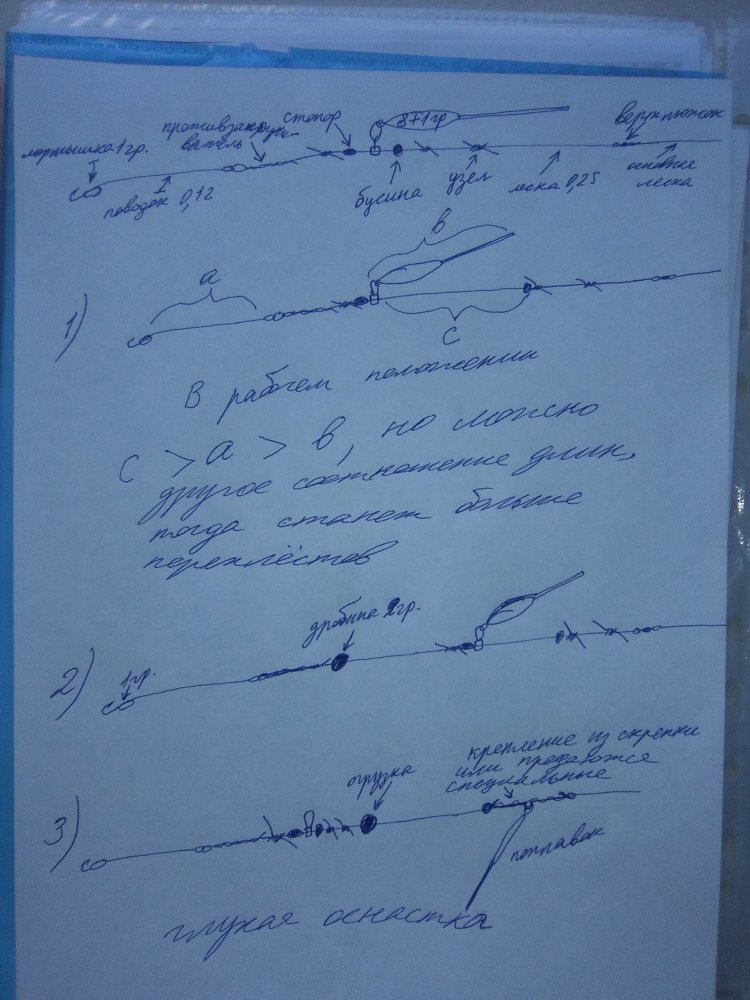 мормышка 1 гр.
поводок 0,12
противзакручи-
ватель
стопор
8+1 гр
бусина
узел
леска 0,25
вертлюжок
основная
леска
1)
a
в
c
В рабочем положении
c > a > в, но можно
другое соотношение длин,
тогда станет больше
перехлёстов
2)
1гр.
дробина 2гр.
3)
огрузка
крепление из скрепки
или продаются
специальные
поплавок
глухая оснастка